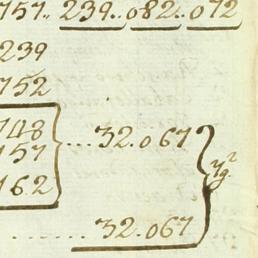 757.. 239..082..072
239
752
748 ... 32.067
757
162
........ 32.067